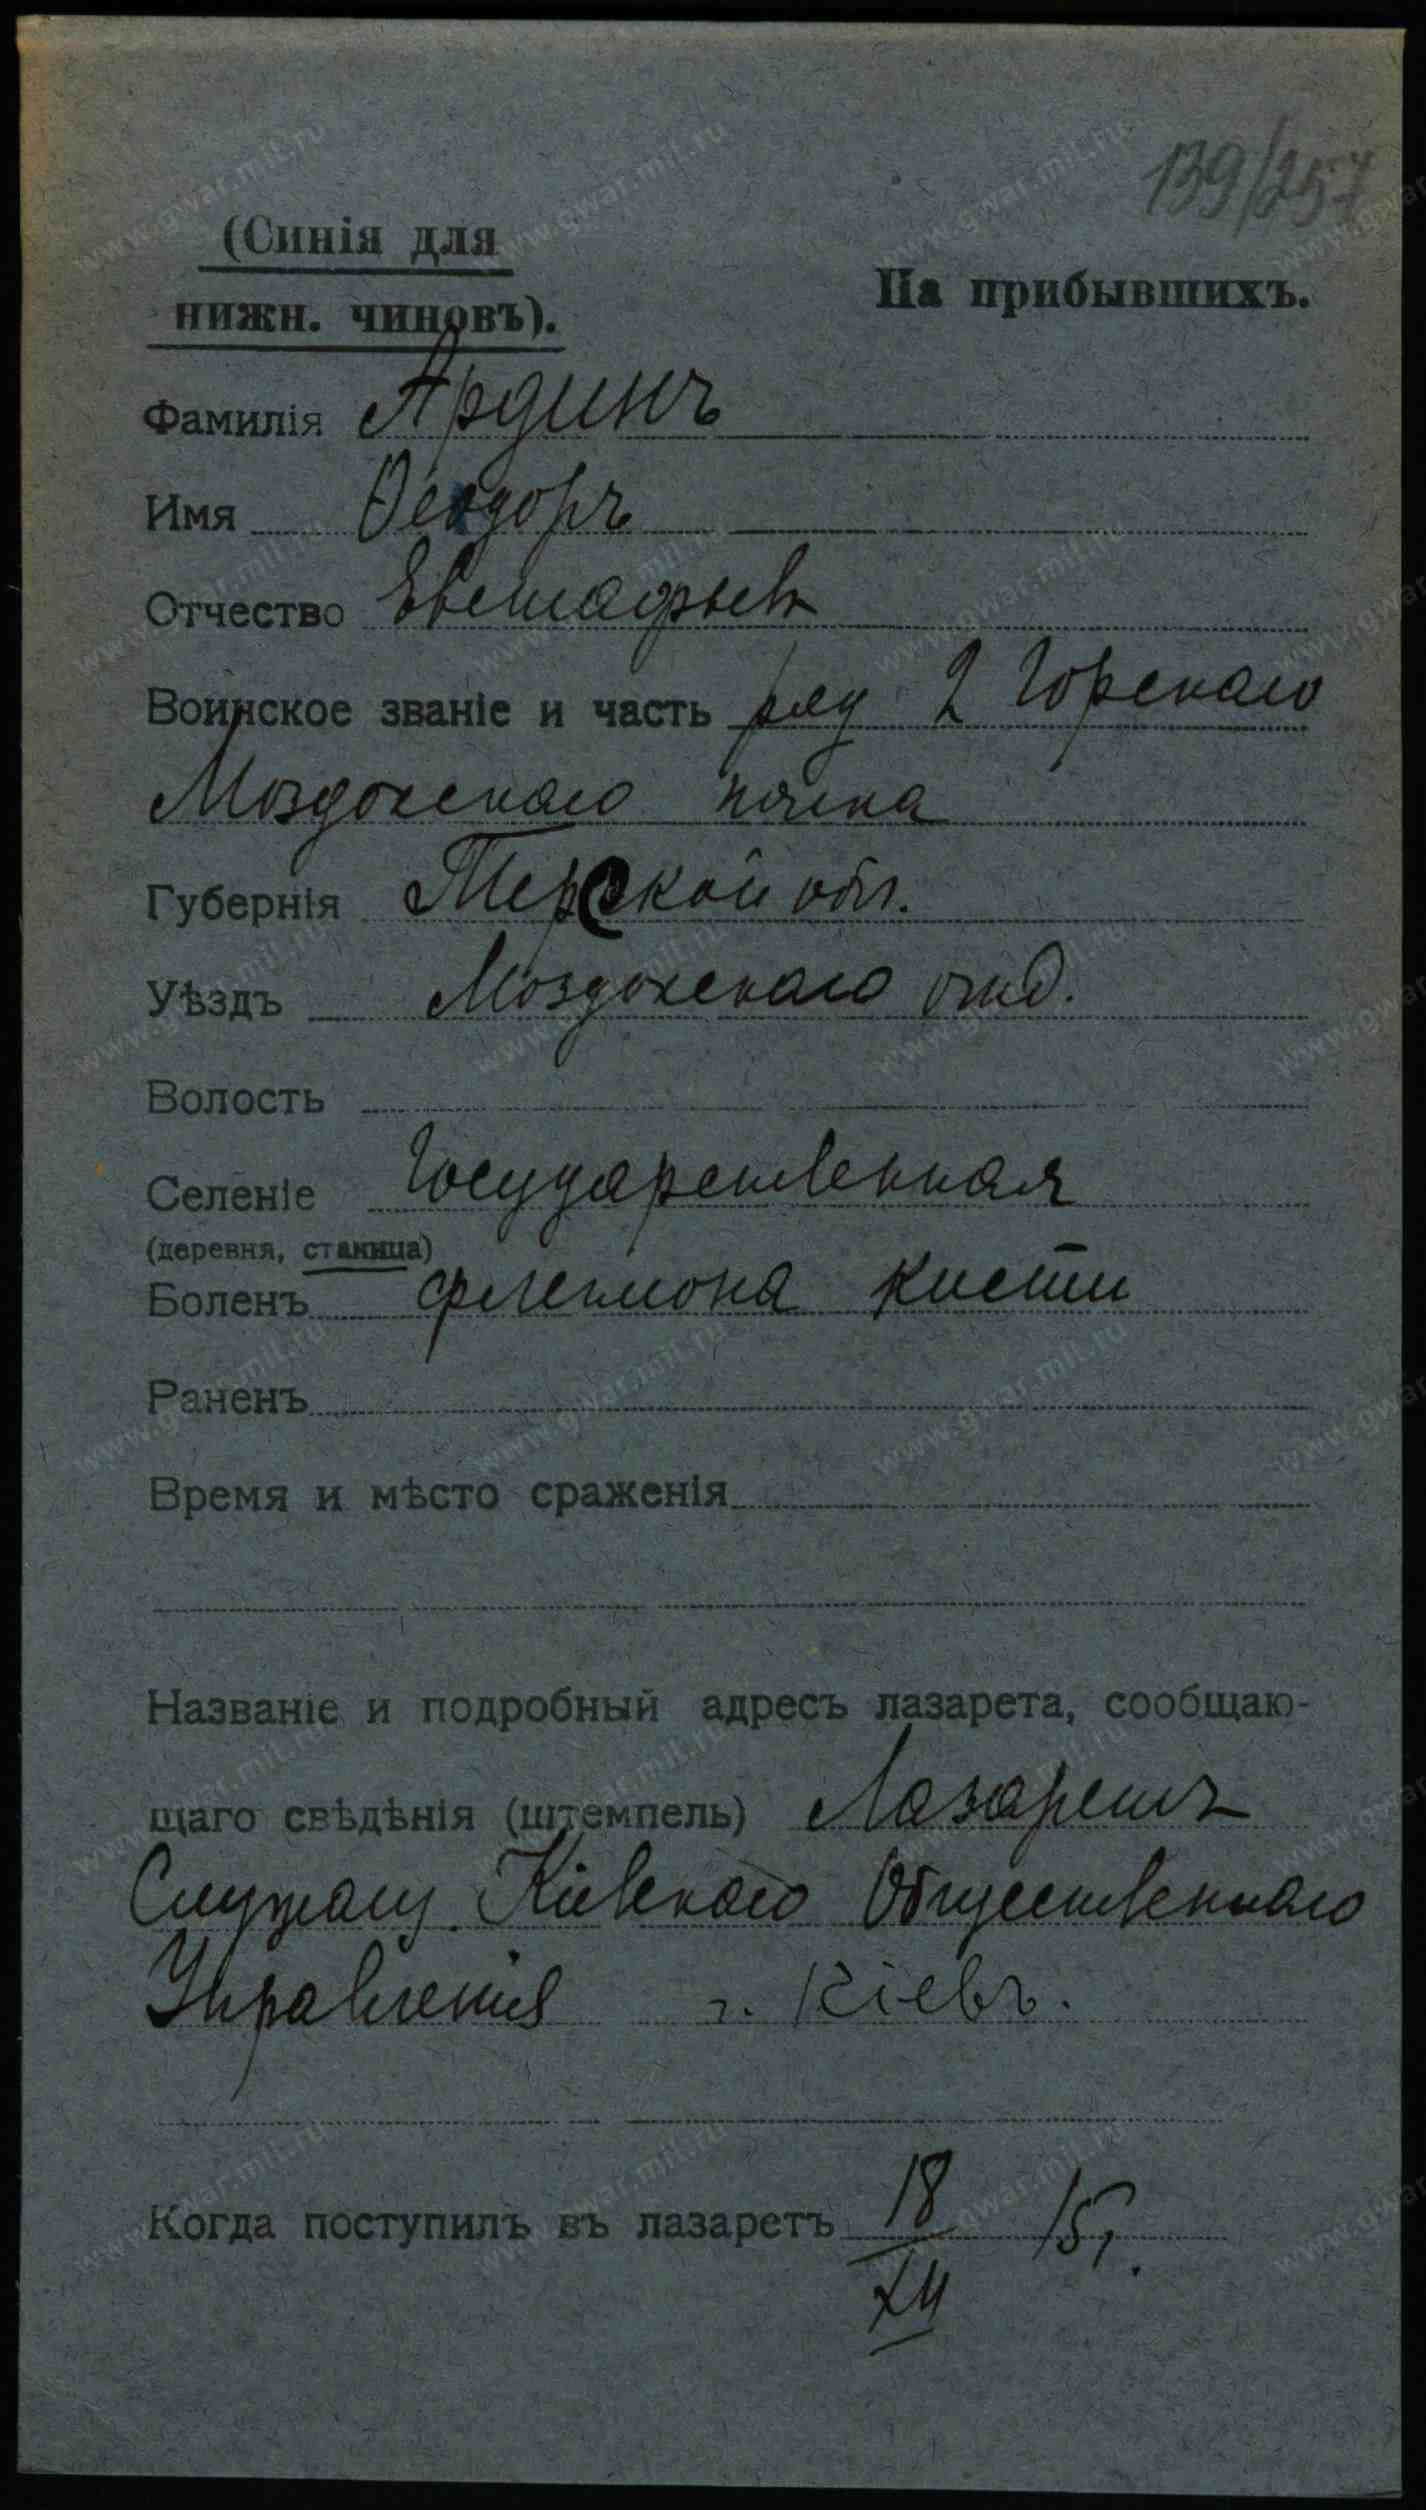 139/257
(Синія для
нижн. чиновъ).
На прибывшихъ.
Фамилія Ардинъ
Имя Ѳеодоръ
Отчество Евстафьев
Воинское званіе и часть ряд 2 Горскаго
Моздокскаго полка
Губернія Терской обл.
Уѣздъ Моздокскаго отд.
Волость
Селеніе Государственная
(деревня, станица)
Боленъ флегмона кисти
Раненъ
Время и мѣсто сраженія
Названіе и подробный адресъ лазарета, сообщаю-
щаго свѣдѣнія (штемпель) Лазаретъ
Служащ. Кіевскаго Общественнаго
Управленія г. Кіевъ.
Когда поступилъ въ лазаретъ 18/XII 15 г.
www.gwar.mil.ru